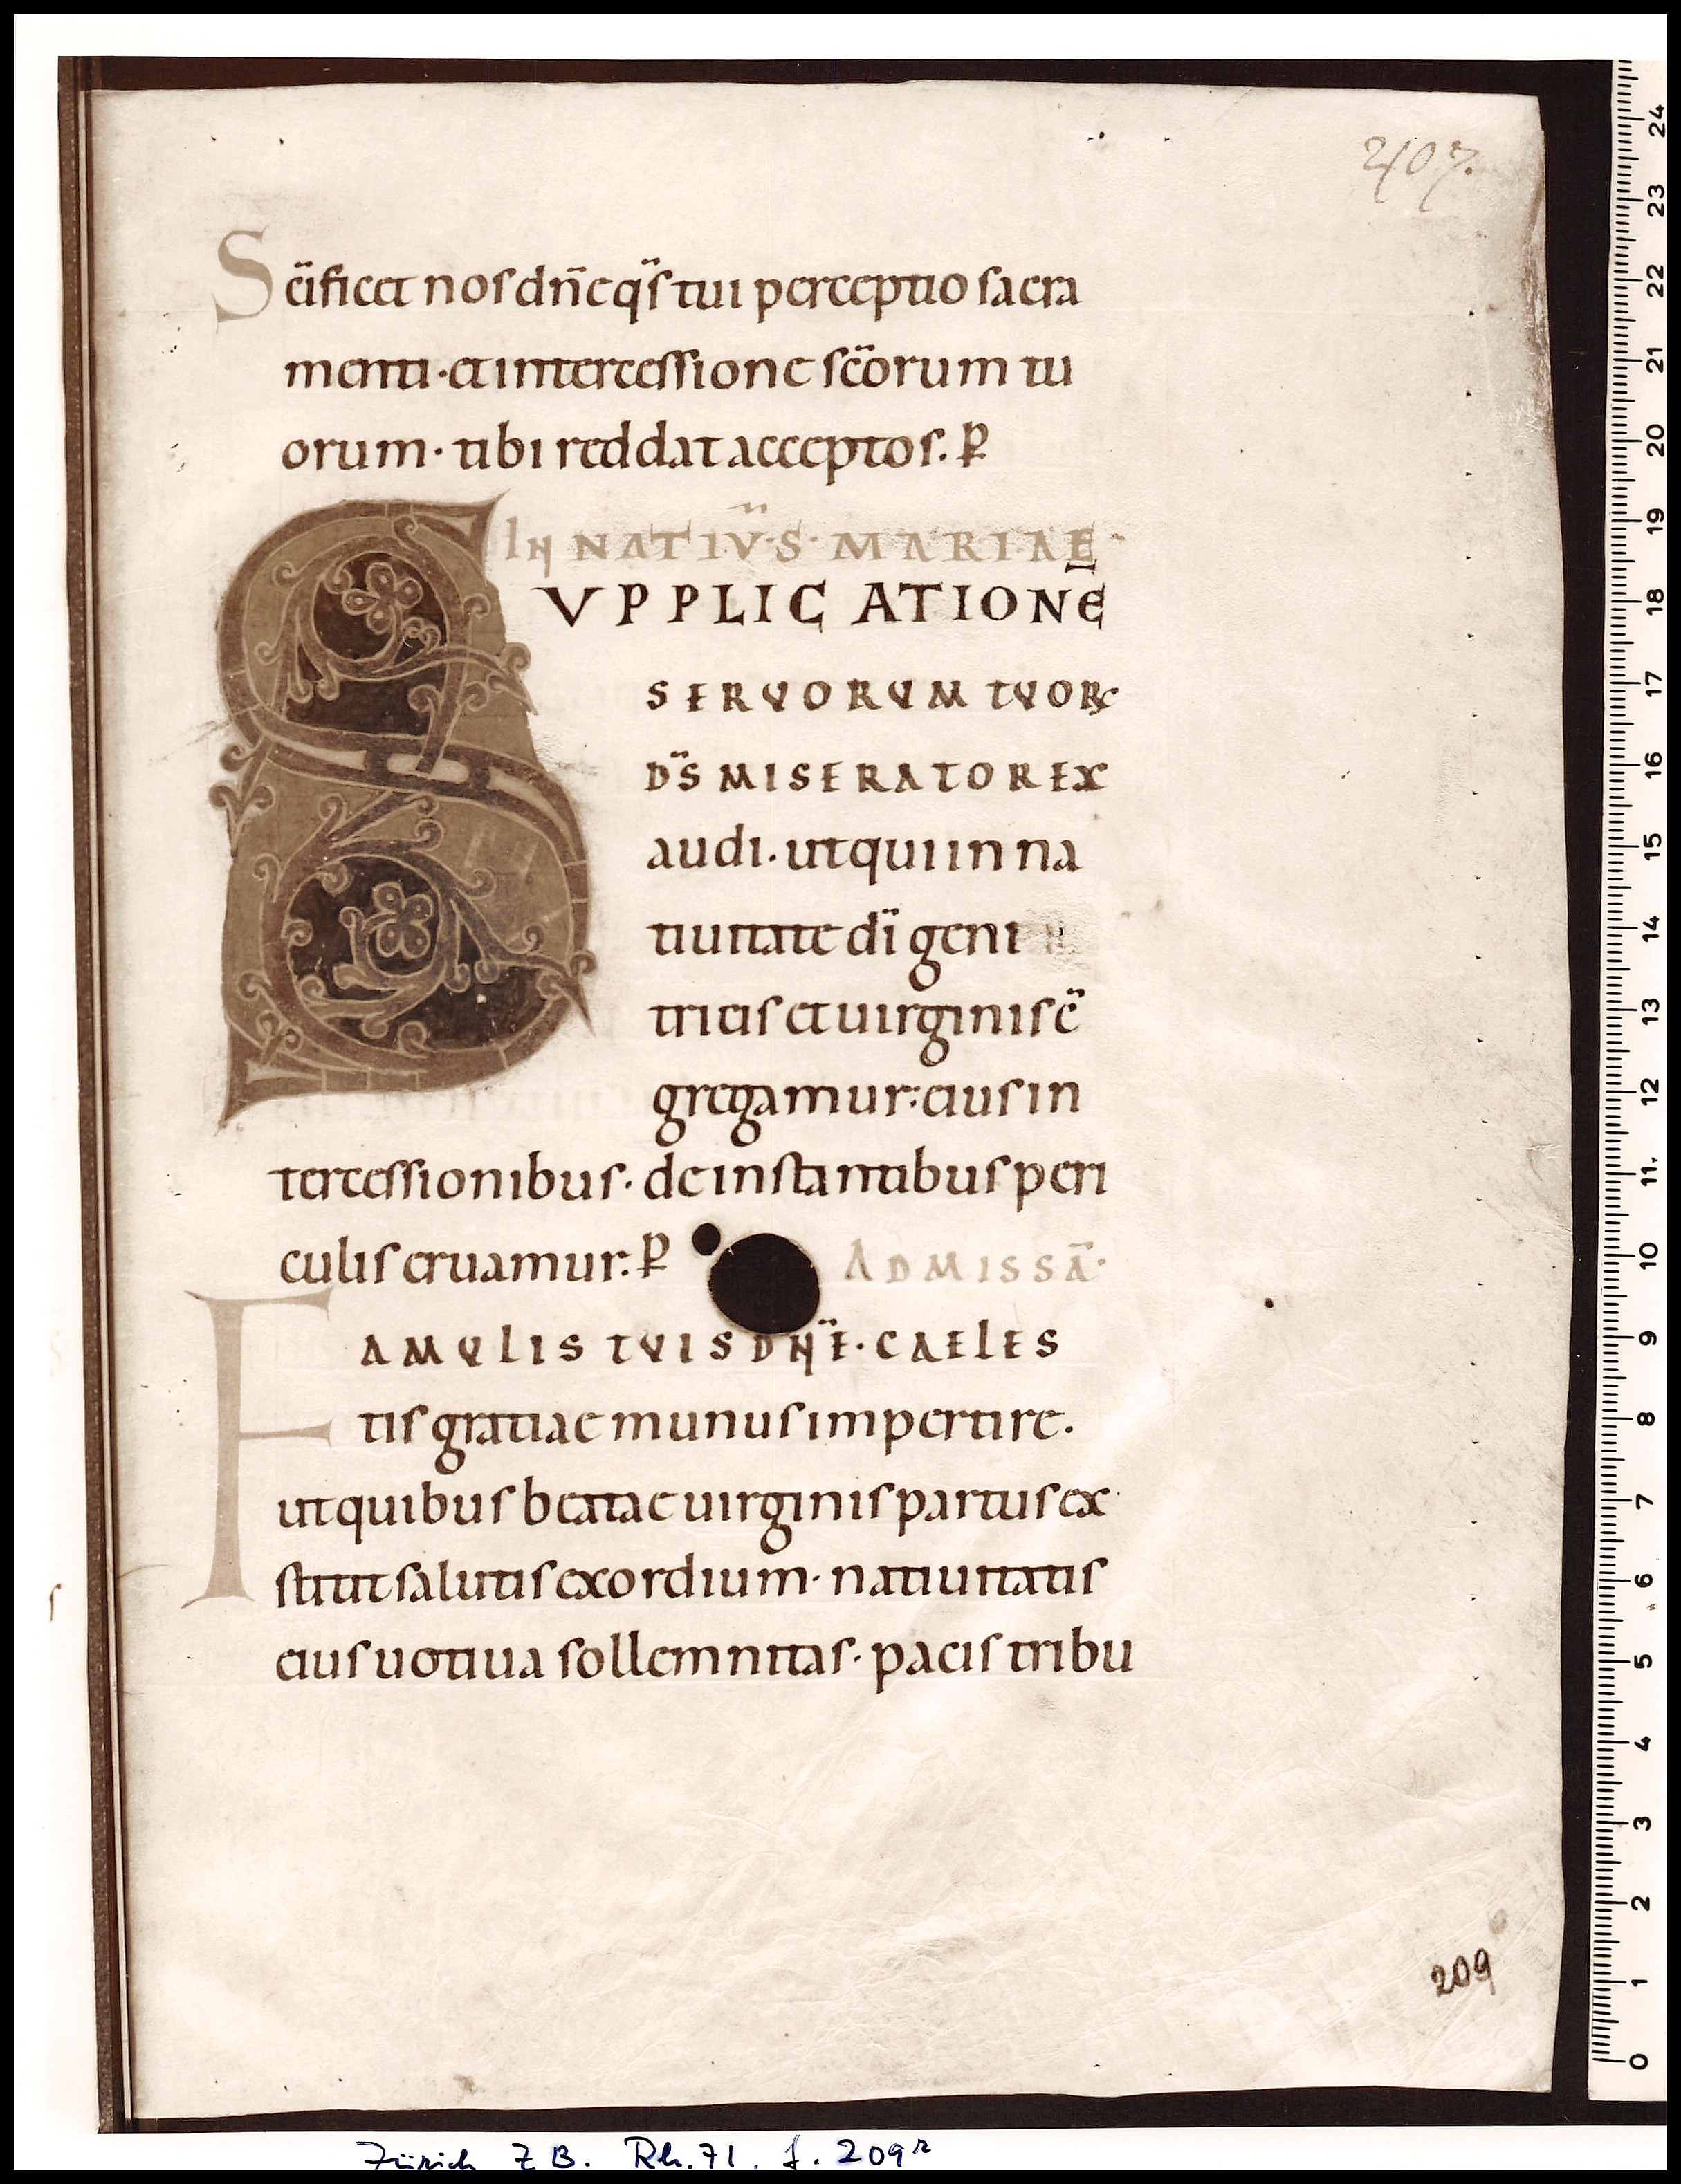 407.
Scïficet nos dn̄e qs̈ tui perceptio sacra
menti · et intercessione sc̈orum tu
orum · tibi reddat acceptos. P̄
IN NATIV̈·S· MARIAE·
SVPPLICATIONE
SERVORVM TVOR̨
DS̈ MISERATOR EX
audi · ut qui in na
tiuitate dï geni
tricis et uirginis c̈
gregamur: eius in
tercessionibus · de instantibus peri
culis eruamur:· P̄
AD MISSĀ·
FAMVLIS TVIS DN̈E · CAELES
tis gratiae munus impertire.
ut quibus beatae uirginis partus ex
stitit salutis exordium · natiuitatis
eius uotiua sollemnitas · pacis tribu
209
Zürich ZB. Rh. 71. f. 209r
24
23
22
21
20
19
18
17
16
15
14
13
12
11
10
9
8
7
6
5
4
3
2
1
0